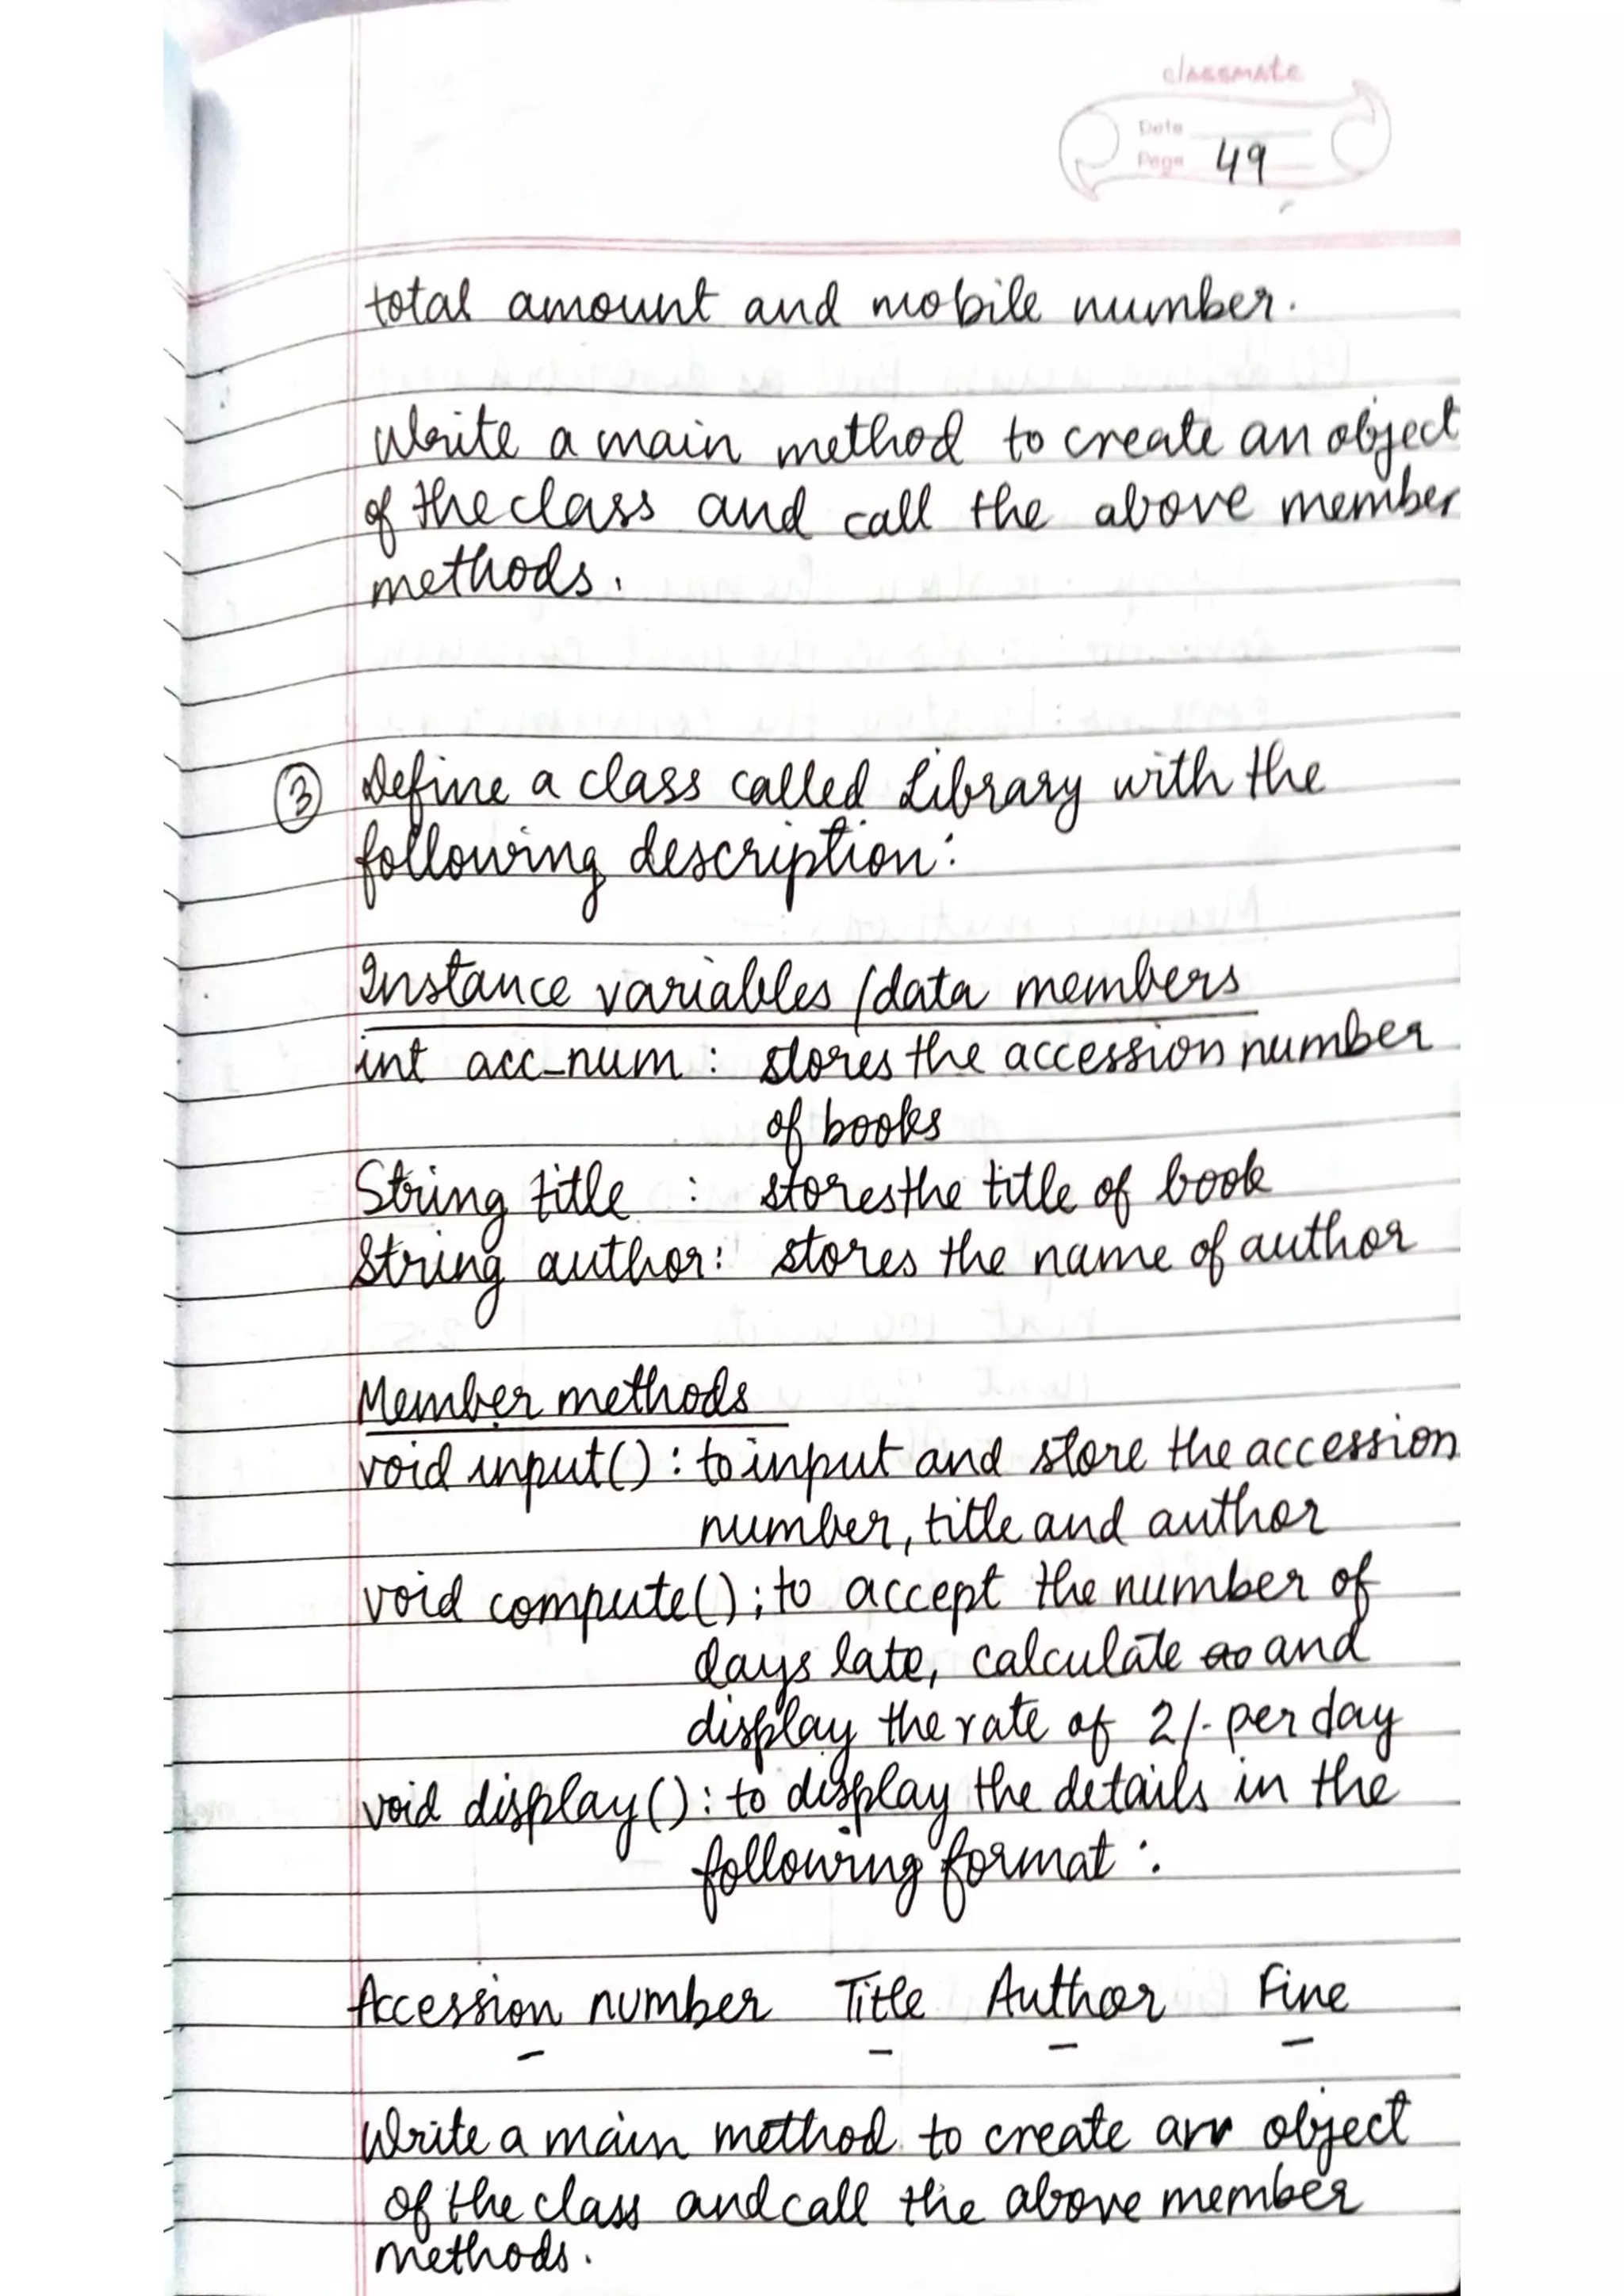 classmate
Date
Page 49
total amount and mobile number.
Write a main method to create an object
of the class and call the above member
methods.
③ Define a class called Library with the
following description:
Instance variables /data members
int acc_num : stores the accession number
of books
String title : stores the title of book
String author: stores the name of author
Member methods
void input() : to input and store the accession
number, title and author
void compute() : to accept the number of
days late, calculate and
display the rate of 2/- per day
void display() : to display the details in the
following format :
Accession number Title Author Fine
- - - -
Write a main method to create an object
of the class and call the above member
methods.